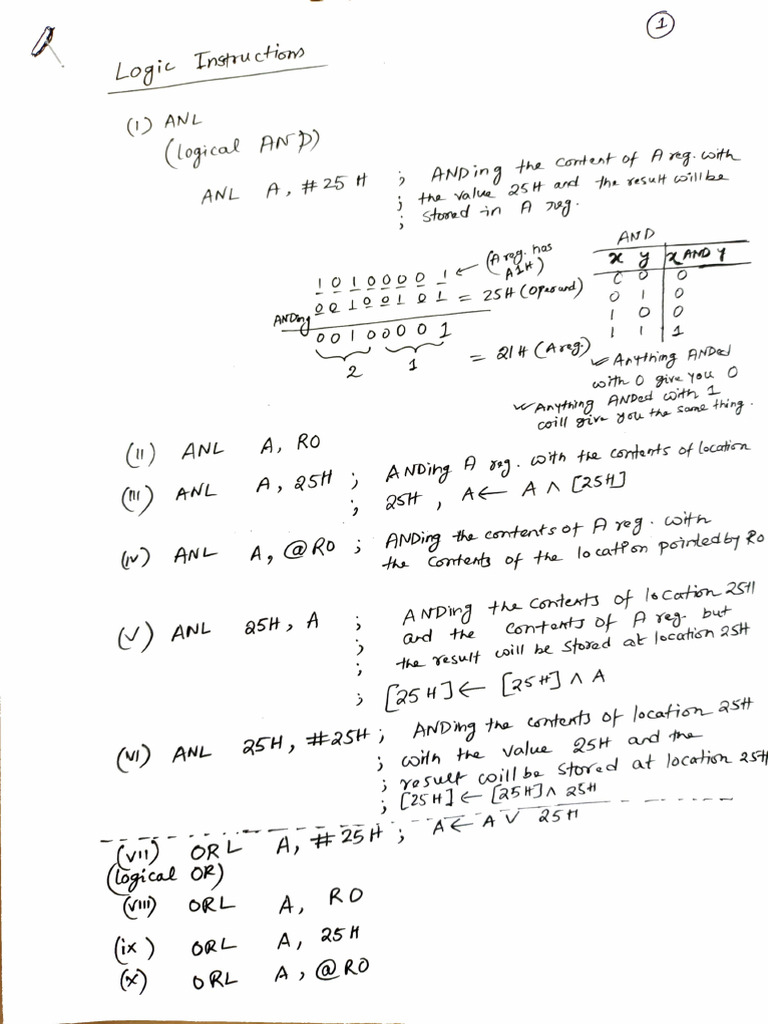 1
Logic Instructions
(1) ANL
(logical AND)
ANL A, #25H ; ANDing the content of A reg. with
; the value 25H and the result will be
; stored in A reg.
AND
x y x AND y
0 0 0
0 1 0
1 0 0
1 1 1
1 0 1 0 0 0 0 1 ← (A reg. has A1H)
ANDing 0 0 1 0 0 1 0 1 = 25H (Operand)
0 0 1 0 0 0 0 1
2 1 = 21H (A reg.)
✓ Anything ANDed
with 0 give you 0
✓ Anything ANDed with 1
will give you the same thing.
(II) ANL A, R0
(III) ANL A, 25H ; ANDing A reg. with the contents of location
; 25H, A ← A ∧ [25H]
(IV) ANL A, @R0 ; ANDing the contents of A reg. with
the contents of the location pointed by R0
(V) ANL 25H, A ; ANDing the contents of location 25H
; and the contents of A reg. but
; the result will be stored at location 25H
; [25H] ← [25H] ∧ A
(VI) ANL 25H, #25H ; ANDing the contents of location 25H
; with the value 25H and the
; result will be stored at location 25H
; [25H] ← [25H] ∧ 25H
(VII) ORL A, #25H ; A ← A ∨ 25H
(logical OR)
(VIII) ORL A, R0
(ix) ORL A, 25H
(x) ORL A, @R0